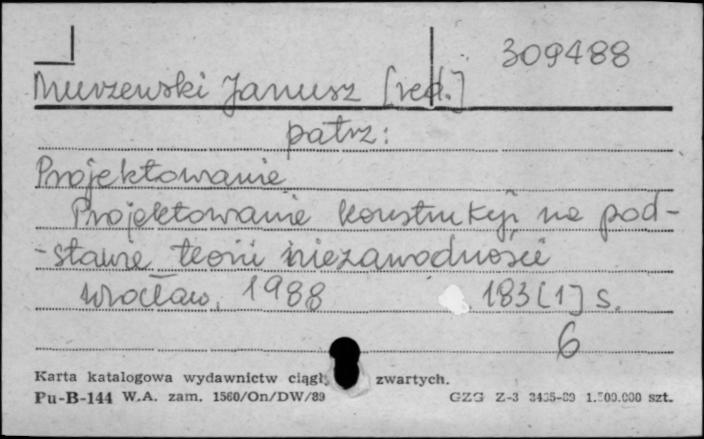 309488
Murzewski Janusz [red.]
patrz:
Projektowanie
Projektowanie konstrukcji na pod-
-stawie teorii niezawodności
Wrocław, 1988 183[1] s.
6
Karta katalogowa wydawnictw ciągł. zwartych.
Pu-B-144 W.A. zam. 1560/On/DW/89 GZG Z-3 3435-89 1.500.000 szt.